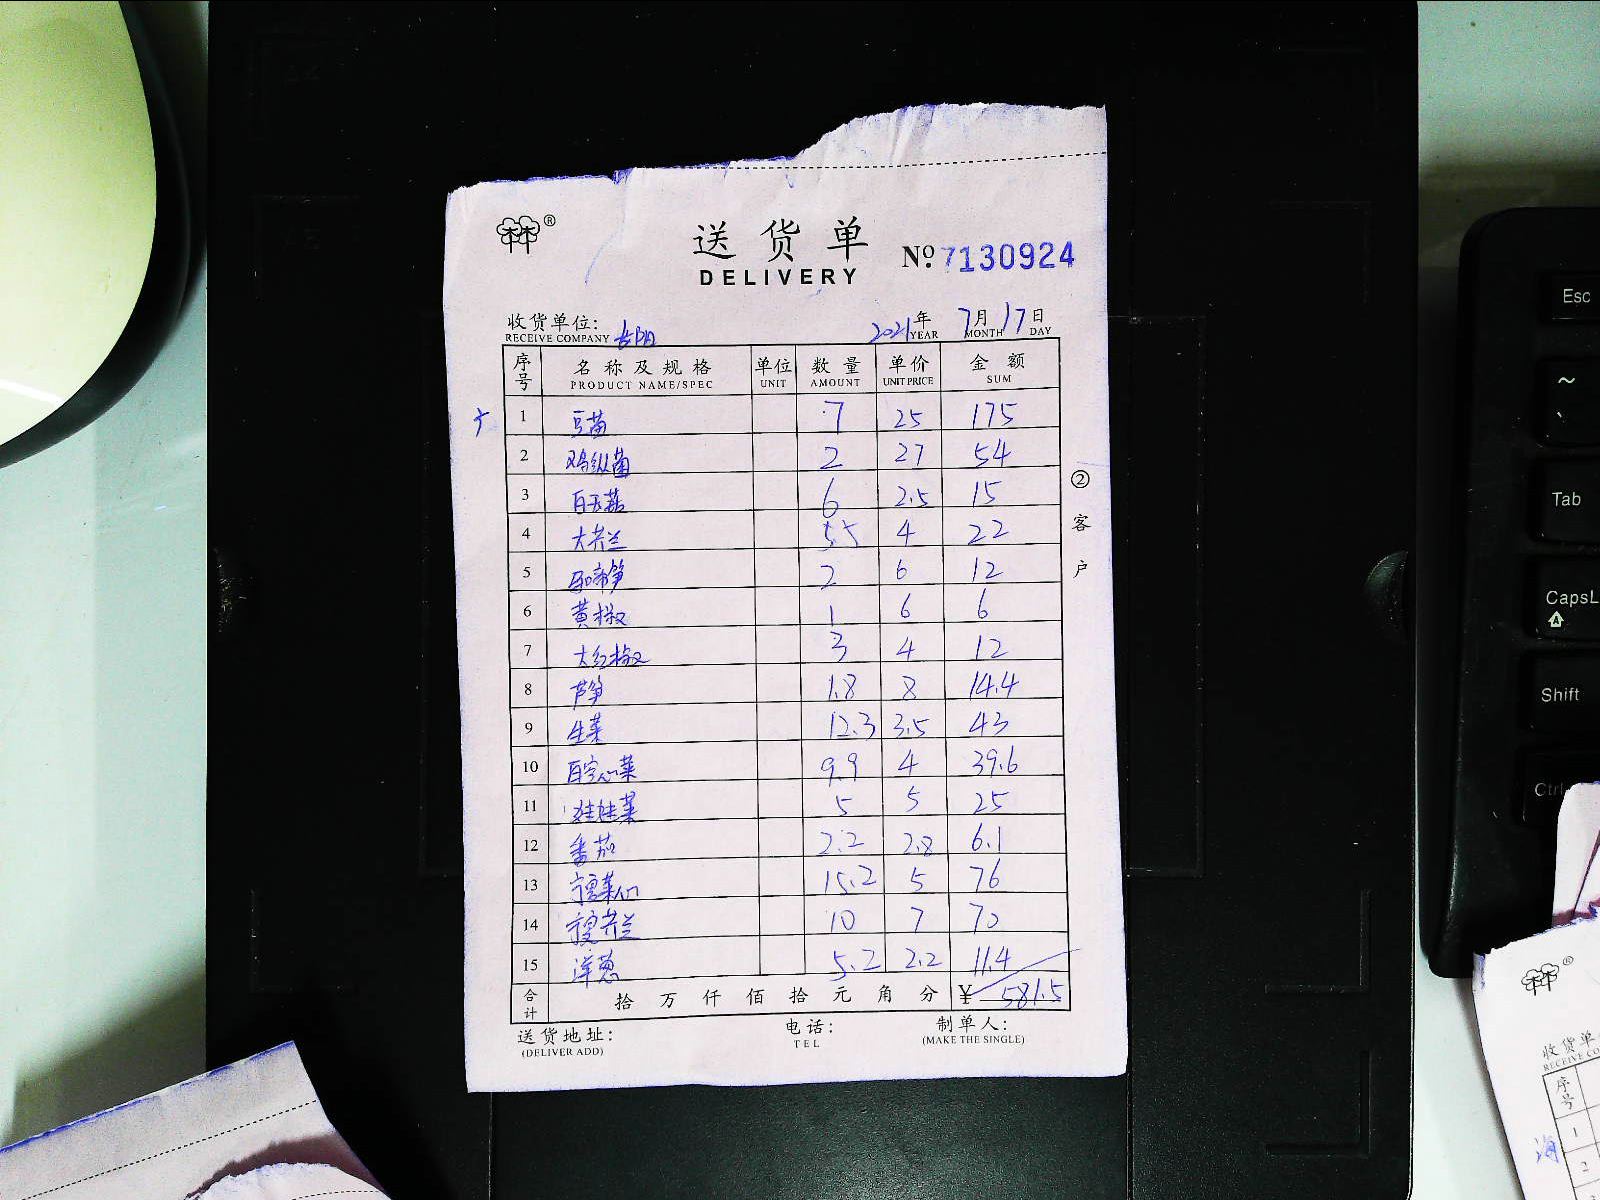 送货单
DELIVERY
№ 7130924
收货单位:
RECEIVE COMPANY
2021 年 7 月 17 日
YEAR MONTH DAY
序号 名称及规格 单位 数量 单价 金额
PRODUCT NAME/SPEC UNIT AMOUNT UNIT PRICE SUM
1 豆苗 7 25 175
2 鸡枞菌 2 27 54
3 白玉菇 6 2.5 15
4 大芥兰 5.5 4 22
5 2 6 12
6 黄椒 1 6 6
7 大红椒 3 4 12
8 芦笋 1.8 8 14.4
9 生菜 12.3 3.5 43
10 9.9 4 39.6
11 娃娃菜 5 5 25
12 番茄 2.2 2.8 6.1
13 15.2 5 76
14 芥兰 10 7 70
15 洋葱 5.2 2.2 11.4
合计 拾 万 仟 佰 拾 元 角 分 ¥ 581.5
送货地址: 电话: 制单人:
(DELIVER ADD) TEL (MAKE THE SINGLE)
② 客户
Esc
~
Tab
CapsL
Shift
Ctrl
收货单
RECEIVE CO
序号
1
2